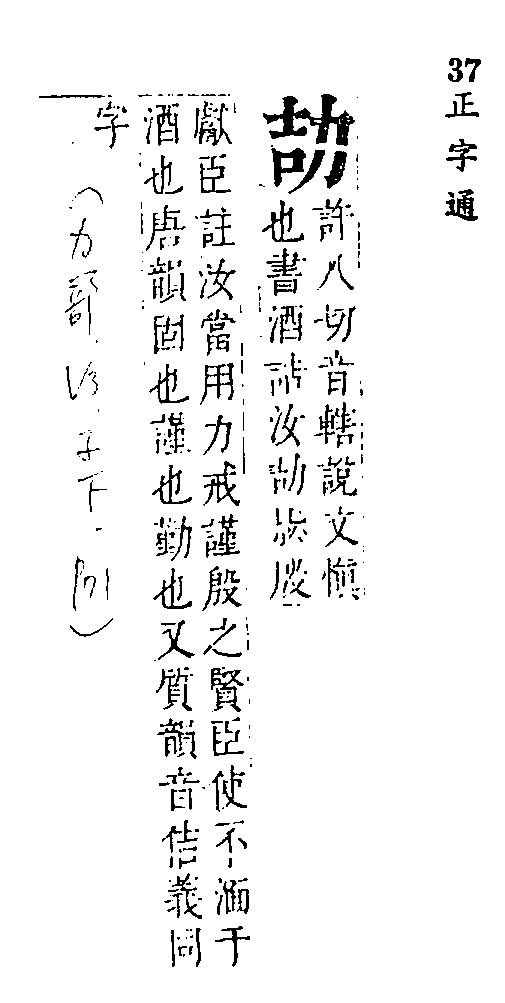 37 正字通
劼
許八切音轄說文愼
也書酒誥汝劼毖殷
獻臣註汝當用力戒謹殷之賢臣使不湎于
酒也唐韻固也謹也勤也又質韻音佶義同
字
(力部 子下